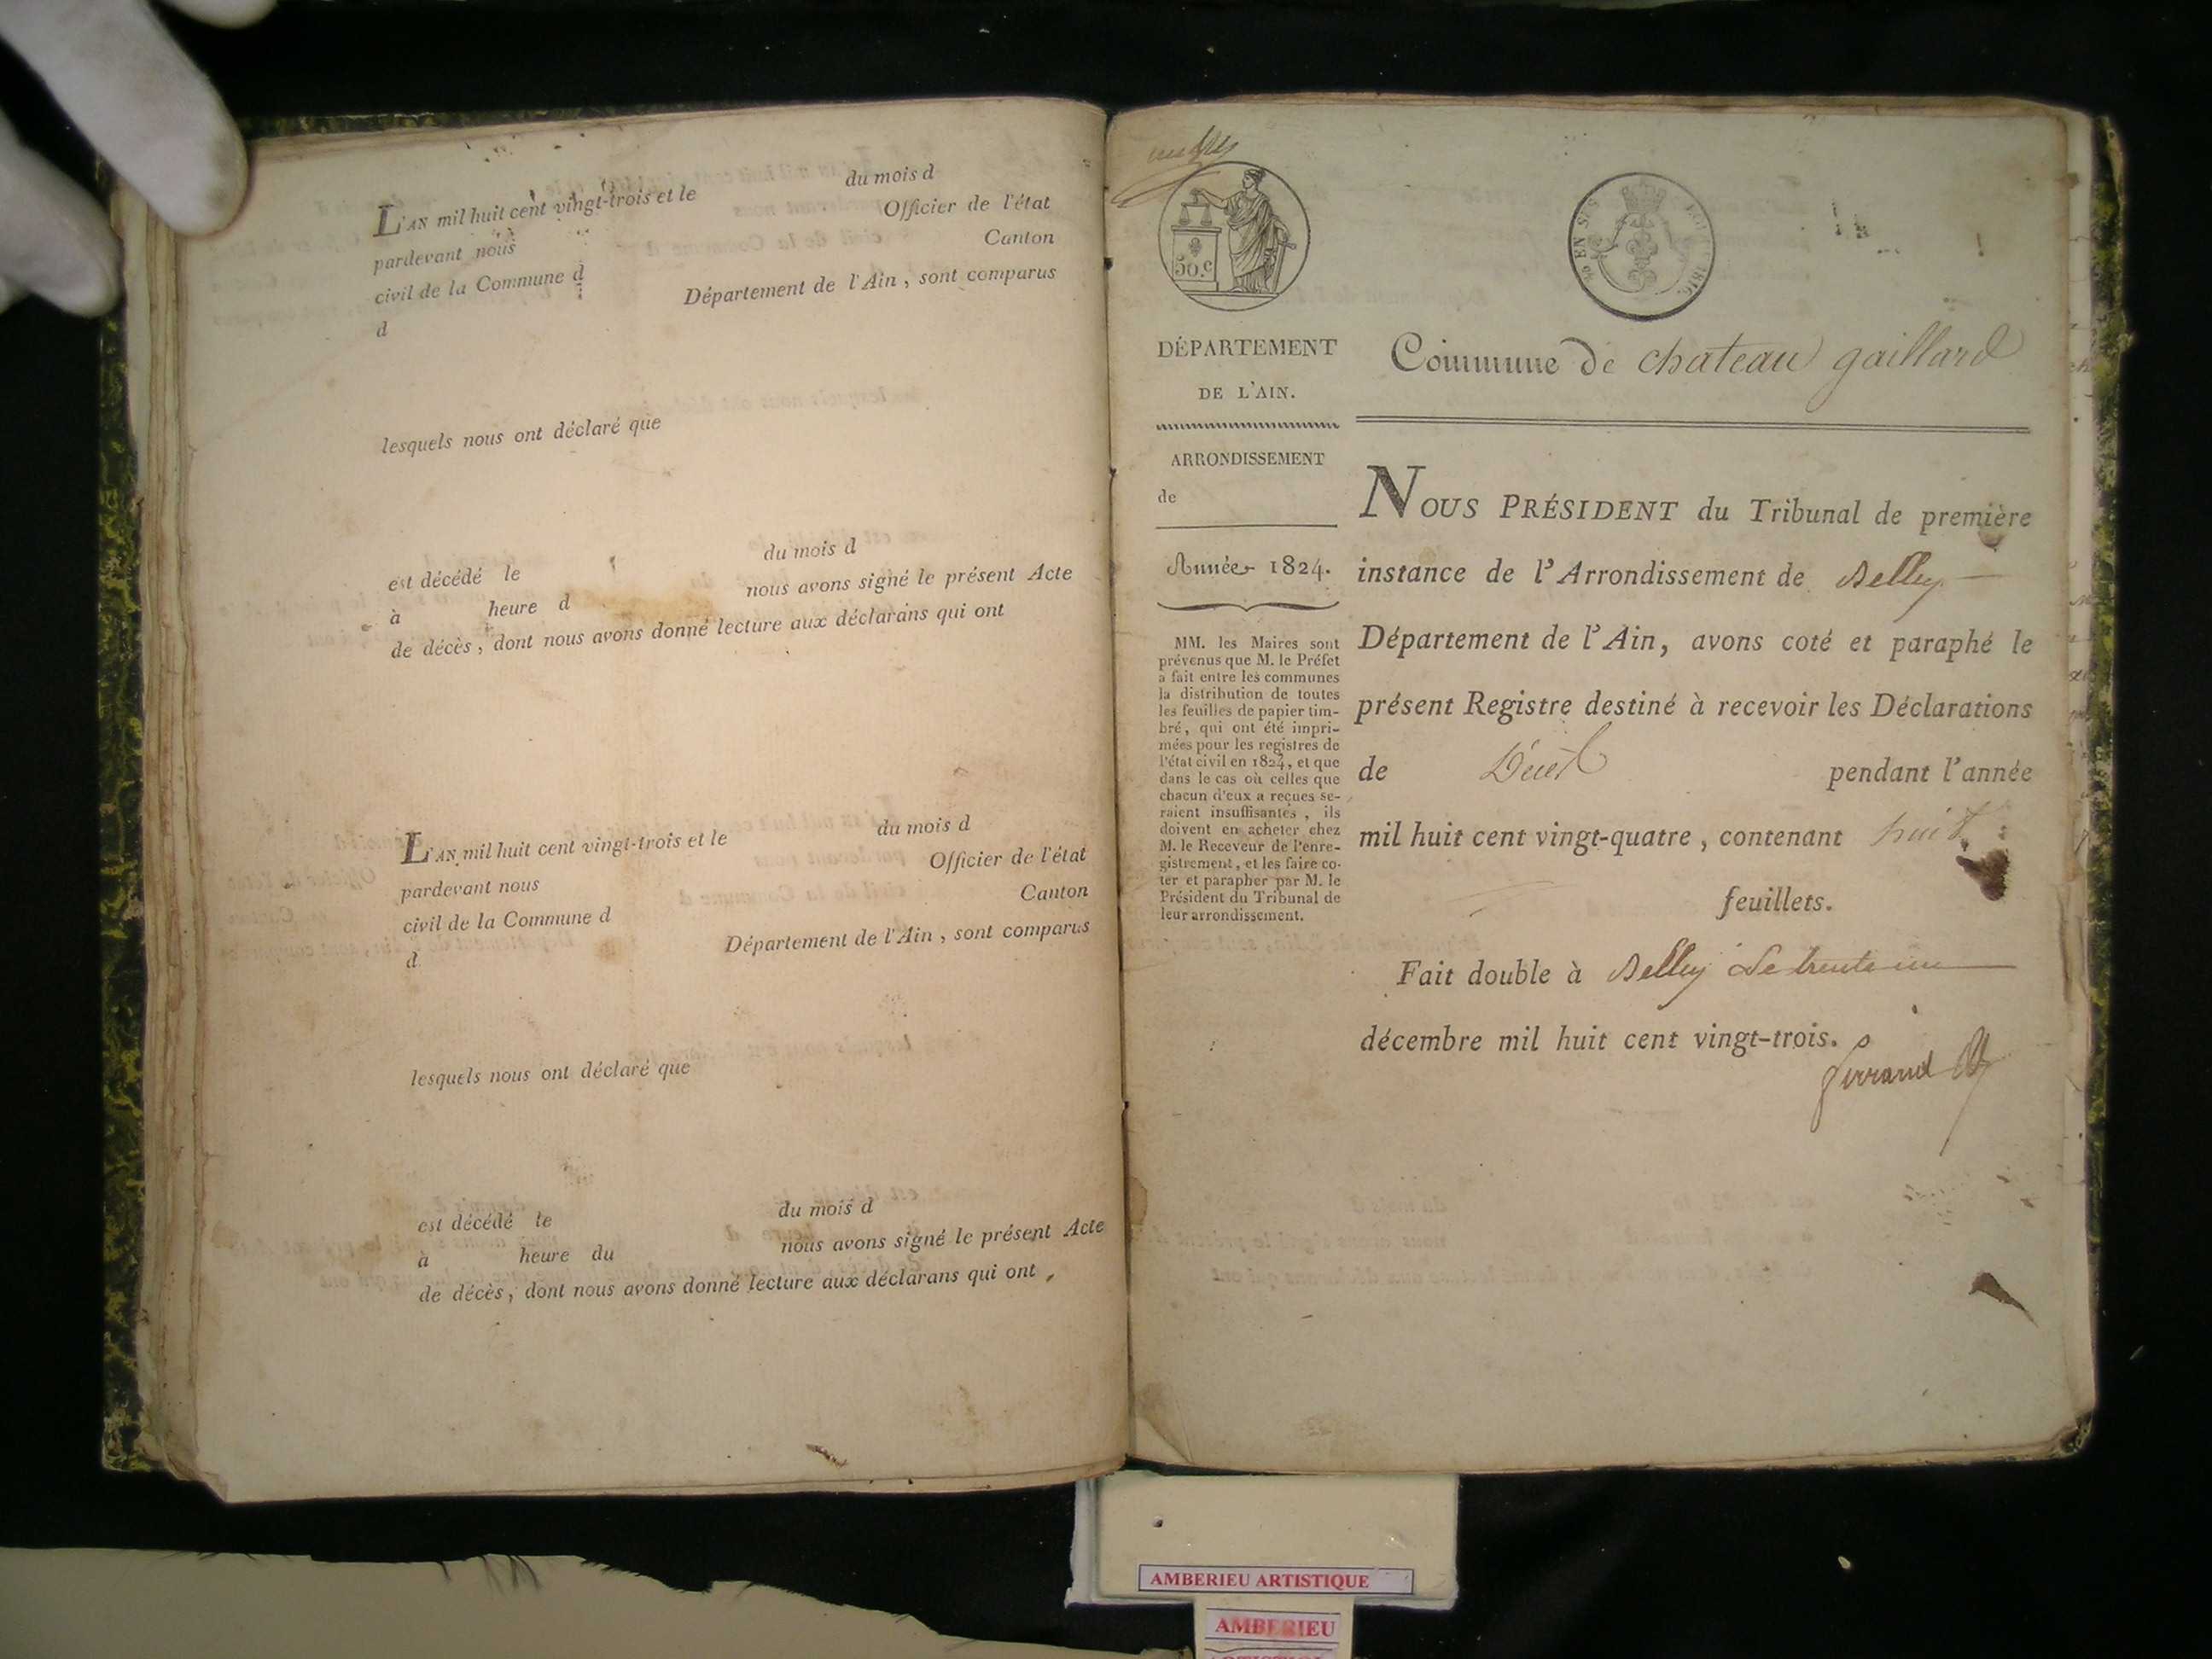 L'AN mil huit cent vingt-trois et le du mois d
pardevant nous Officier de l'état
civil de la Commune d Canton
d Département de l'Ain, sont comparus
lesquels nous ont déclaré que
est décédé le du mois d
à heure d nous avons signé le présent Acte
de décès, dont nous avons donné lecture aux déclarans qui ont
L'AN mil huit cent vingt-trois et le du mois d
pardevant nous Officier de l'état
civil de la Commune d Canton
d Département de l'Ain, sont comparus
lesquels nous ont déclaré que
est décédé le du mois d
à heure du nous avons signé le présent Acte
de décès, dont nous avons donné lecture aux déclarans qui ont
50.c
DÉPARTEMENT
DE L'AIN.
ARRONDISSEMENT
de
Année 1824.
MM. les Maires sont
prévenus que M. le Préfet
a fait entre les communes
la distribution de toutes
les feuilles de papier tim-
bré, qui ont été impri-
mées pour les registres de
l'état civil en 1824, et que
dans le cas où celles que
chacun d'eux a reçues se-
raient insuffisantes, ils
doivent en acheter chez
M. le Receveur de l'enre-
gistrement, et les faire co-
ter et parapher par M. le
Président du Tribunal de
leur arrondissement.
Commune de chateau gaillard
NOUS PRÉSIDENT du Tribunal de première
instance de l'Arrondissement de Belley
Département de l'Ain, avons coté et paraphé le
présent Registre destiné à recevoir les Déclarations
de pendant l'année
mil huit cent vingt-quatre, contenant huit
feuillets.
Fait double à Belley le trente un
décembre mil huit cent vingt-trois.
AMBERIEU ARTISTIQUE
AMBERIEU